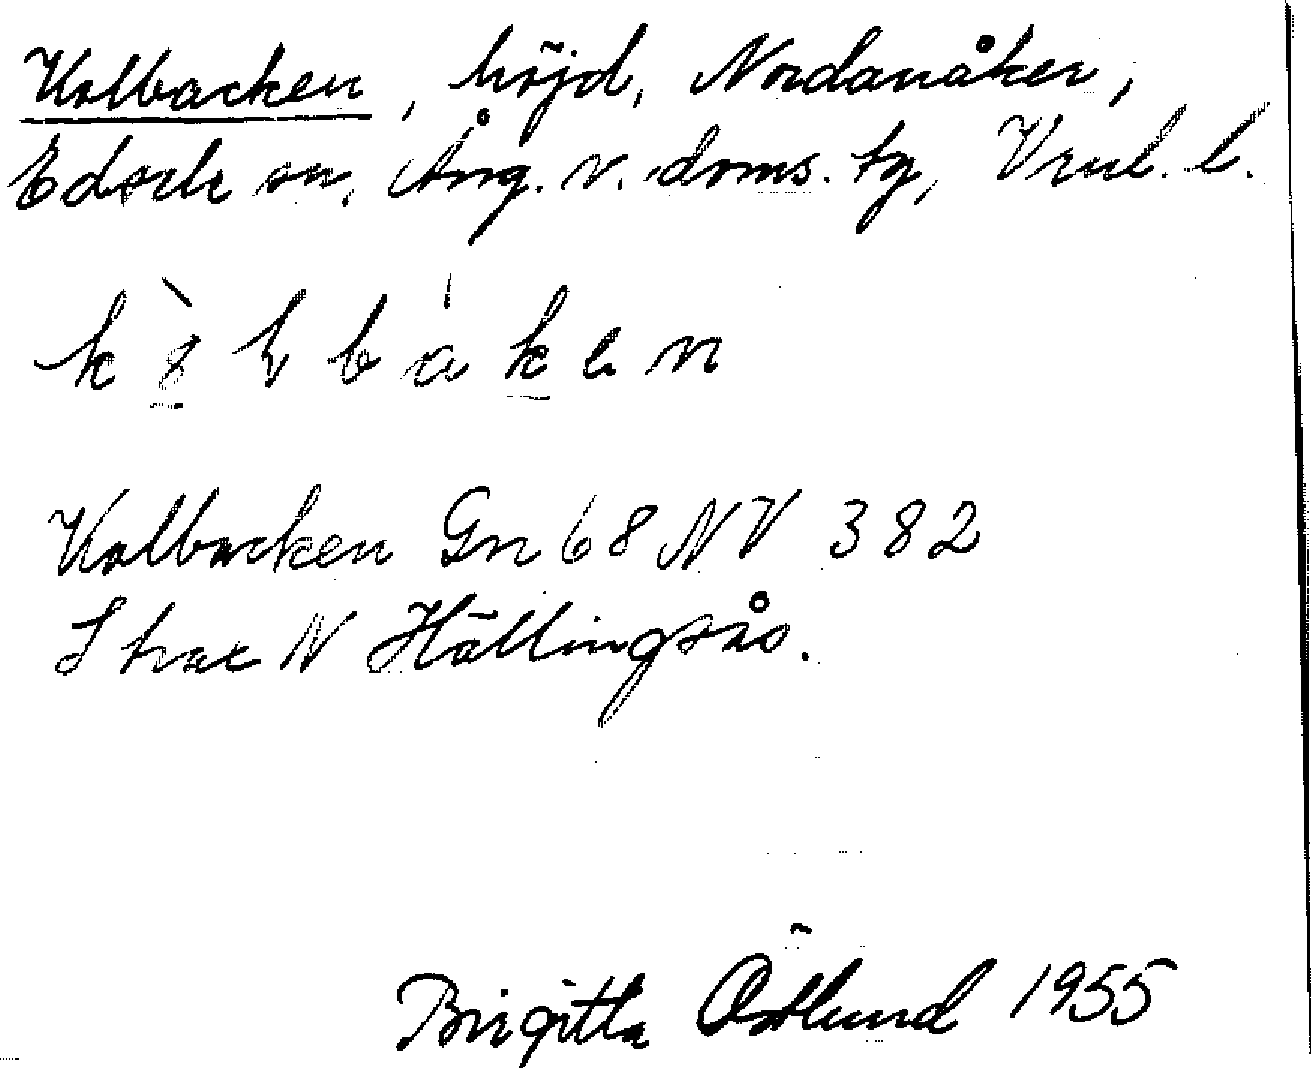 Kolbacken, höjd, Nordanåker,
Edsele sn, Ång. v. doms. tg, Vnl. l.
Kolbacken Gn 68 NV 382
Strax N Hällingsås.
Birgitta Östlund 1955